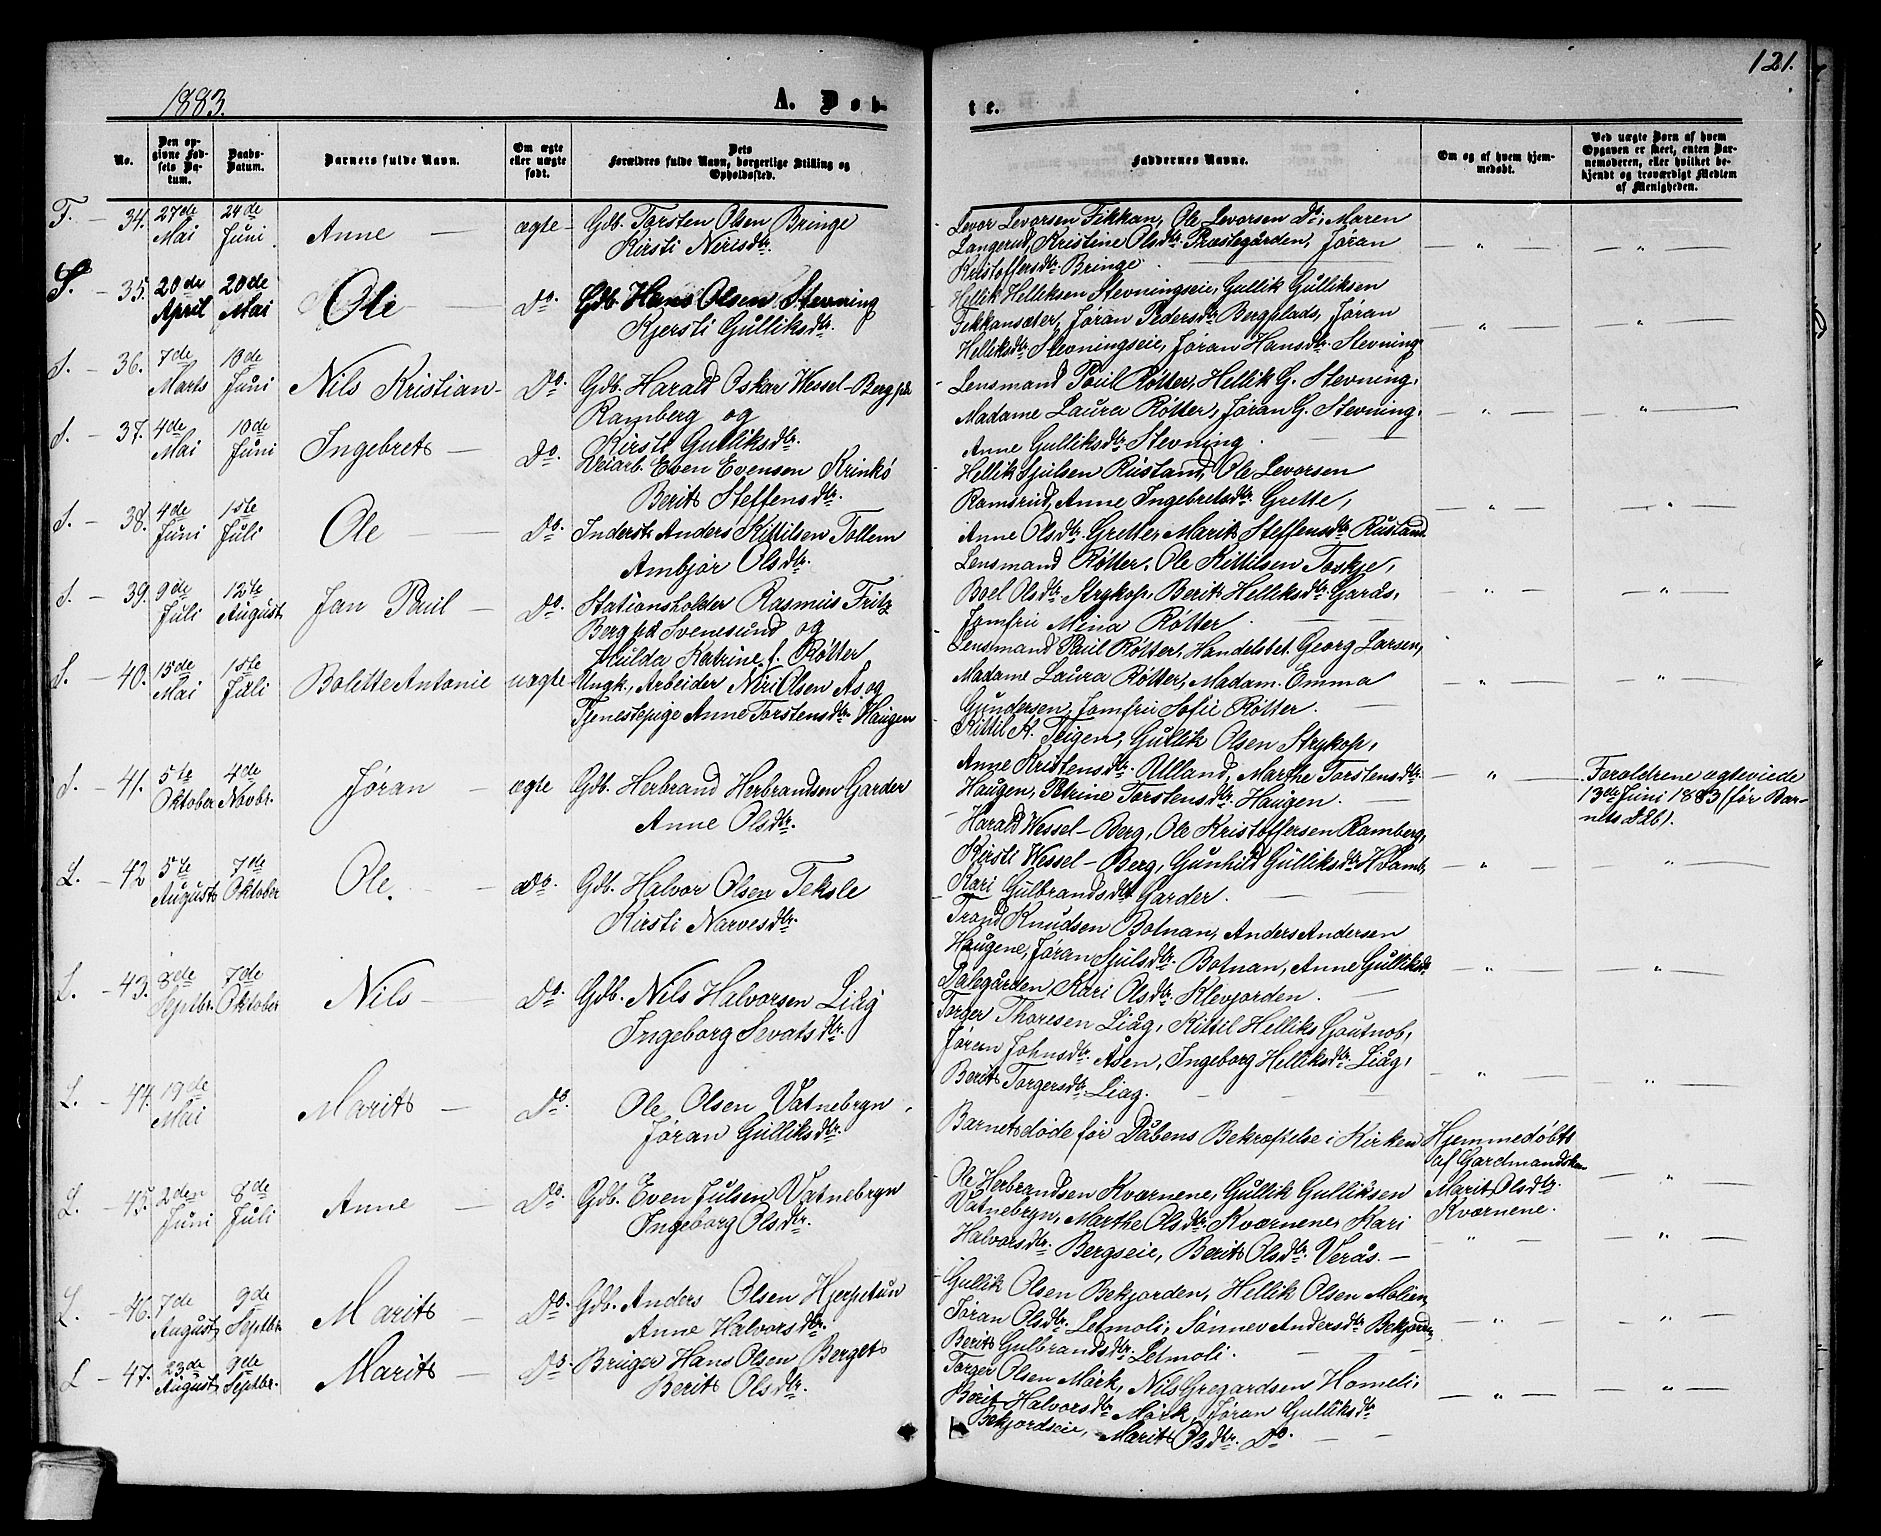 121.
1883.
A. Døb-
te.
No.
Den opgivne Fødsels Datum.
Daabs-Datum.
Barnets fulde Navn.
Om ægte eller uægte født.
Dets Forældres fulde Navn, borgerlige Stilling og Opholdssted.
Faddernes Navne.
Om og af hvem hjemmedøbt.
Ved uægte Børn af hvem Opgaven er skeet, enten Barnemoderen, eller hvilket bekjendt og troværdigt Medlem af Menigheden.
F. - 34. 27de Mai 24de Juni Anne - ægte - Gdb. Torsten Olsen Bringe
Kirsti Nerisdtr.
Levor Levorsen Fikkan, Ole Levorsen Do, Maren
Langerud, Kristine Olsdtr. Præstegården, Jøran
Kristoffersdtr. Bringe.
S. - 35. 20de April 20de Mai Ole - Do. Gdb. Hans Olsen Stevning
Kjersti Gulliksdtr.
Hellik Helliksen Stevningseie, Gullik Gulliksen
Fekkansæter, Jøran Pedersdtr. Bergplads, Jøran
Helliksdtr. Stevningseie, Jøran Hansdtr. Stevning
S. - 36. 7de Marts 10de Juni Nils Kristian - Do. Gdb. Harald Oskar Wessel-Berg pda
Ramberg og
Kirsti Gulliksdtr.
Lensmand Paul Røtter, Hellik G. Stevning,
Madame Laura Røtter, Jøran G. Stevning,
Anne Gulliksdtr. Stevning.
S. - 37. 4de Mai 10de Juni Ingebret - Do. Veiarb. Even Evensen Krinkö
Berit Steffensdtr.
Hellik Sjulsen Rustand, Ole Levorsen
Ramsrud, Anne Ingebretsdtr. Grette,
Anne Olsdtr. Grette, Marit Steffensdtr. Rustand
S. - 38. 4de Juni 1ste Juli Ole - Do. Inderst Anders Kittilsen Tollem
Ambjør Olsdtr.
Lensmand Røtter, Ole Kittilsen Toskje,
Boel Olsdtr. Strykop, Berit Helliksdtr. Garås,
Jomfru Mina Røtter.
S. - 39. 9de Juli 12te August Jan Paul - Do. Stationsholder Rasmus Fritz
Berg pd Svenesund og
Hulda Katrine f. Røtter
Lensmand Paul Røtter, Handelsbet. Georg Larsen,
Madame Laura Røtter, Madam. Emma
Gundersen, Jomfru Sofie Røtter.
S. - 40. 15de Mai 1ste Juli Bolette Antonie uægte Ungk., Arbeider Neri Olsen As og
Tjenestepige Anne Torstensdtr. Haugen
Kittil K. Teigen, Gullik Olsen Strykop,
Anne Kristensdtr. Ulland, Marthe Torstensdtr.
Haugen, Petrine Torstensdtr. Haugen.
Forældrene ægteviede
13de Juni 1883 (før Bar-
nets Dåb).
S. - 41. 5te Oktober 4de Novbr. Jøran - ægte Gdb. Herbrand Herbrandsen Garder
Anne Olsdtr.
Harald Wessel-Berg, Ole Kristoffersen Ramberg,
Kirsti Wessel-Berg, Gunhild Gulliksdtr. Hvamb,
Kari Gulbrandsdtr. Garder.
L. - 42 5te August 7de Oktober Ole. - Do. Gdb. Halvor Olsen Teksle
Kirsti Narvesdtr.
Trond Knudsen Botnan, Anders Andersen
Haugene, Jøran Sjulsdtr. Botnan, Anne Gulliksdtr.
Dalegården, Kari Olsdtr. Klevjorden.
L. - 43. 8de Septbr. 7de Oktober Nils - Do. Gdb. Nils Halvorsen Liåg
Ingeborg Sevatsdtr.
Torger Thoresen Liåg, Kittil Helliks Goutnob,
Jøran Johnsdtr. Åsen, Ingeborg Helliksdtr. Liåg,
Berit Torgersdtr. Liag.
L. - 44. 19de Mai Marit - Do. Ole Olsen Vatnebryn,
Jøran Gulliksdtr.
Barnet døde før Dåbens Bekræftelse i Kirken
Hjemmedøbt
af Gardmandskon
Marit Olsdtr.
Kværnene.
L. - 45. 2den Juni 8de Juli Anne - Do. Gdb. Even Julsen Vatnebryn
Ingeborg Olsdtr.
Ole Herbrandsen Kværnene, Gullik Gulliksen
Vatnebryn, Marthe Olsdtr. Kværnene, Kari
Halvorsdtr. Bergseie, Berit Olsdtr. Verås. -
L. - 46. 7de August 9de Septbr. Marit - Do. Gdb. Anders Olsen Hjerpetun
Anne Halvorsdtr.
Gullik Olsen Bekjorden, Hellik Olsen Molien,
Jøran Olsdtr. Letmoli, Sønnev Andersdtr. Bekjorden
Berit Gulbrandsdtr. Letmoli.
L - 47. 23de August 9de Septbr. Marit - Do. Bruger Hans Olsen Berget
Berit Olsdtr.
Torger Olsen Mørk, Nils Gregardsen Homeli,
Berit Halvorsdtr. Mørk, Jøran Gulliksdtr
Bekjordseie, Marit Olsdtr. Do. -